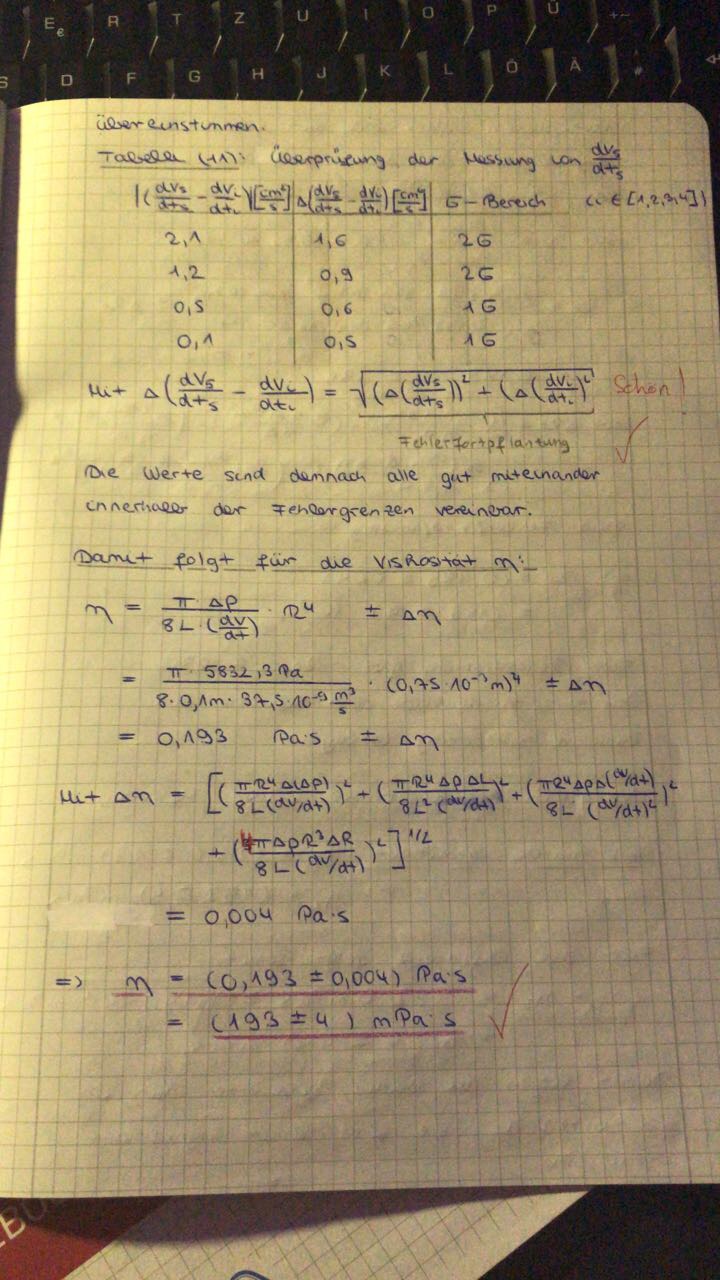 E € R T Z U I O P Ü +~
S D F G H J K L Ö Ä #
übereinstimmen.
Tabelle (11): Überprüfung der Messung von dV₅/dt₅
|(dV₅/dt₅ - dVᵢ/dtᵢ)| [cm³/s] Δ(dV₅/dt₅ - dVᵢ/dtᵢ) [cm³/s] σ-Bereich (i ∈ [1,2,3,4])
2,1 1,6 2σ
1,2 0,9 2σ
0,5 0,6 1σ
0,1 0,5 1σ
Mit Δ(dV₅/dt₅ - dVᵢ/dtᵢ) = √((Δ(dV₅/dt₅))² + (Δ(dVᵢ/dtᵢ)² Schön!
Fehlerfortpflantung
Die Werte sind demnach alle gut miteinander
innerhalb der Fehlergrenzen vereinbar.
Damit folgt für die Viskosität η:
η = π · Δp / 8 L · (dV/dt) · R⁴ ± Δη
= π · 5832,3 Pa / 8 · 0,1m · 37,5 · 10⁻⁹ m³/s · (0,75 · 10⁻³ m)⁴ ± Δη
= 0,193 Pa·s ± Δη
Mit Δη = [(πR⁴Δ(Δp) / 8L(dV/dt))² + (πR⁴ΔpΔL / 8L²(dV/dt))² + (πR⁴ΔpΔ(dV/dt) / 8L (dV/dt)²)²
+ (4πΔpR³ΔR / 8L(dV/dt))²]^1/2
= 0,004 Pa·s
=> η = (0,193 ± 0,004) Pa·s
= (193 ± 4) mPa·s